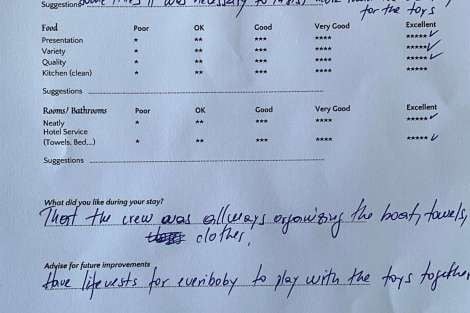 Suggestions
for the toys
Food Poor OK Good Very Good Excellent
Presentation * ** *** **** ***** ✓
Variety * ** *** **** ***** ✓
Quality * ** *** **** ***** ✓
Kitchen (clean) * ** *** **** *****
Suggestions
Rooms/ Bathrooms Poor OK Good Very Good Excellent
Neatly * ** *** **** ***** ✓
Hotel Service
(Towels, Bed,...) * ** *** **** ***** ✓
Suggestions
What did you like during your stay?
That the crew was allways organizing the boat, towels,
clothes,
Advise for future improvements
Have lifevests for everiboby to play with the toys together